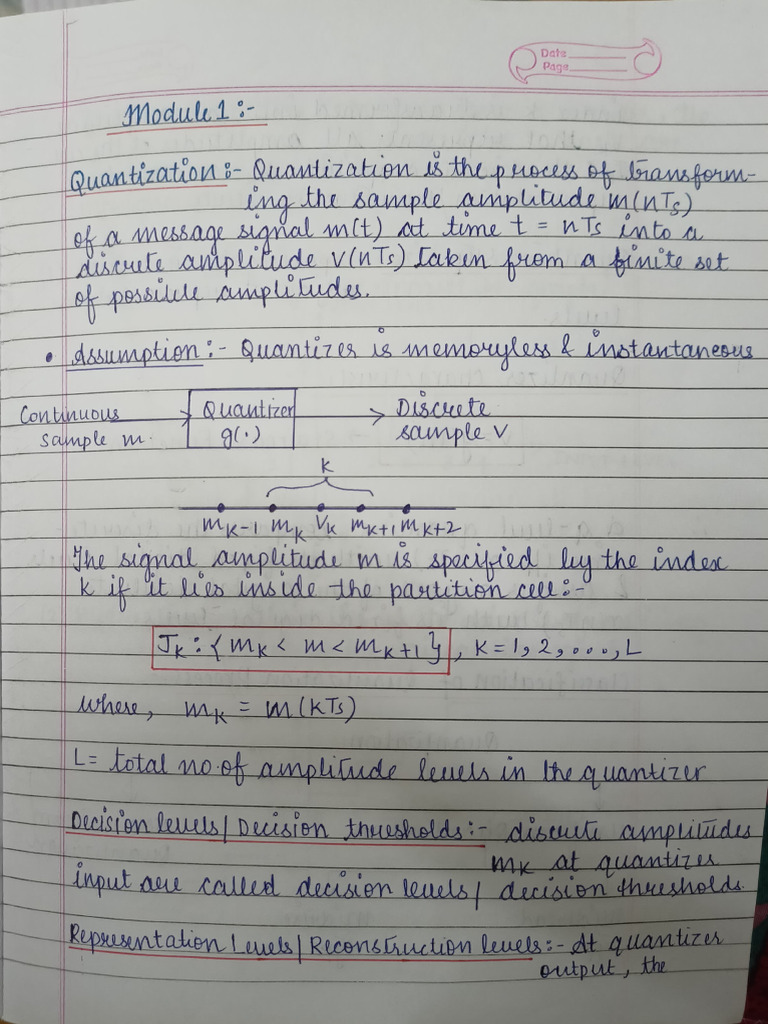 Date
Page
Module 1 :-
Quantization :- Quantization is the process of transform-
ing the sample amplitude m(nTs)
of a message signal m(t) at time t = nTs into a
discrete amplitude v(nTs) taken from a finite set
of possible amplitudes.
• Assumption :- Quantizer is memoryless & instantaneous
Continuous
sample m.
Quantizer
g(.)
Discrete
sample v
K
mK-1 mK VK mK+1 mK+2
The signal amplitude m is specified by the index
K if it lies inside the partition cell :-
JK : { mK < m < mK+1 } , K = 1, 2, ..., L
where, mK = m(KTs)
L = total no. of amplitude levels in the quantizer
Decision levels / Decision thresholds :- discrete amplitudes
mK at quantizer
input are called decision levels / decision thresholds.
Representation Levels / Reconstruction levels :- At quantizer
output, the